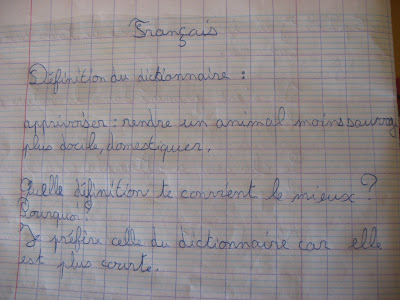 Français
Définition du dictionnaire :
apprivoiser : rendre un animal moins sauvage
plus docile, domestiquer.
Quelle définition te convient le mieux ?
Pourquoi ?
Je préfère celle du dictionnaire car elle
est plus courte.